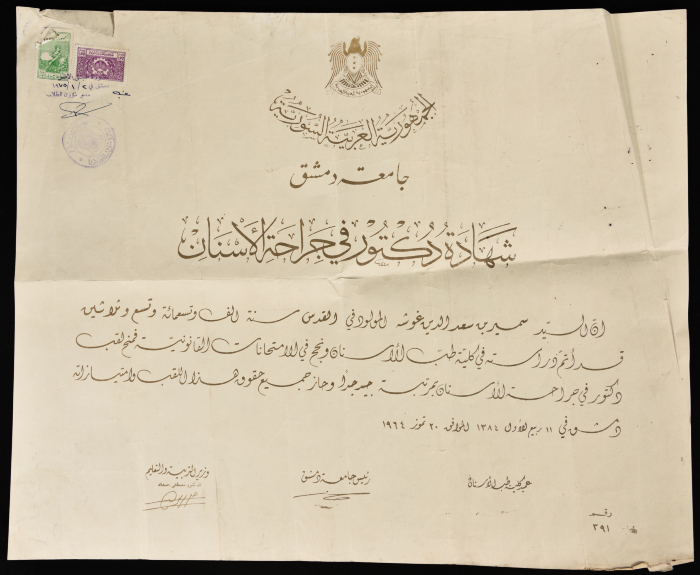 الجمهورية العربية السورية
جامعة دمشق
شهادة دكتور في جراحة الأسنان
ان السيد سمير بن سعد الدين غوشه المولود في القدس سنة الف وتسعمائة وتسع وثلاثين
قد أتم دراسته في كلية طب الأسنان ونجح في الامتحانات القانونية فمنح لقب
دكتور في جراحة الأسنان بمرتبة جيد جدا وحاز جميع حقوق هذا اللقب وامتيازاته
دمشق في ١١ ربيع الأول ١٣٨٤ الموافق ٢٠ تموز ١٩٦٤
عميد كلية طب الأسنان
رئيس جامعة دمشق
وزير التربية والتعليم
رقم
٣٩١